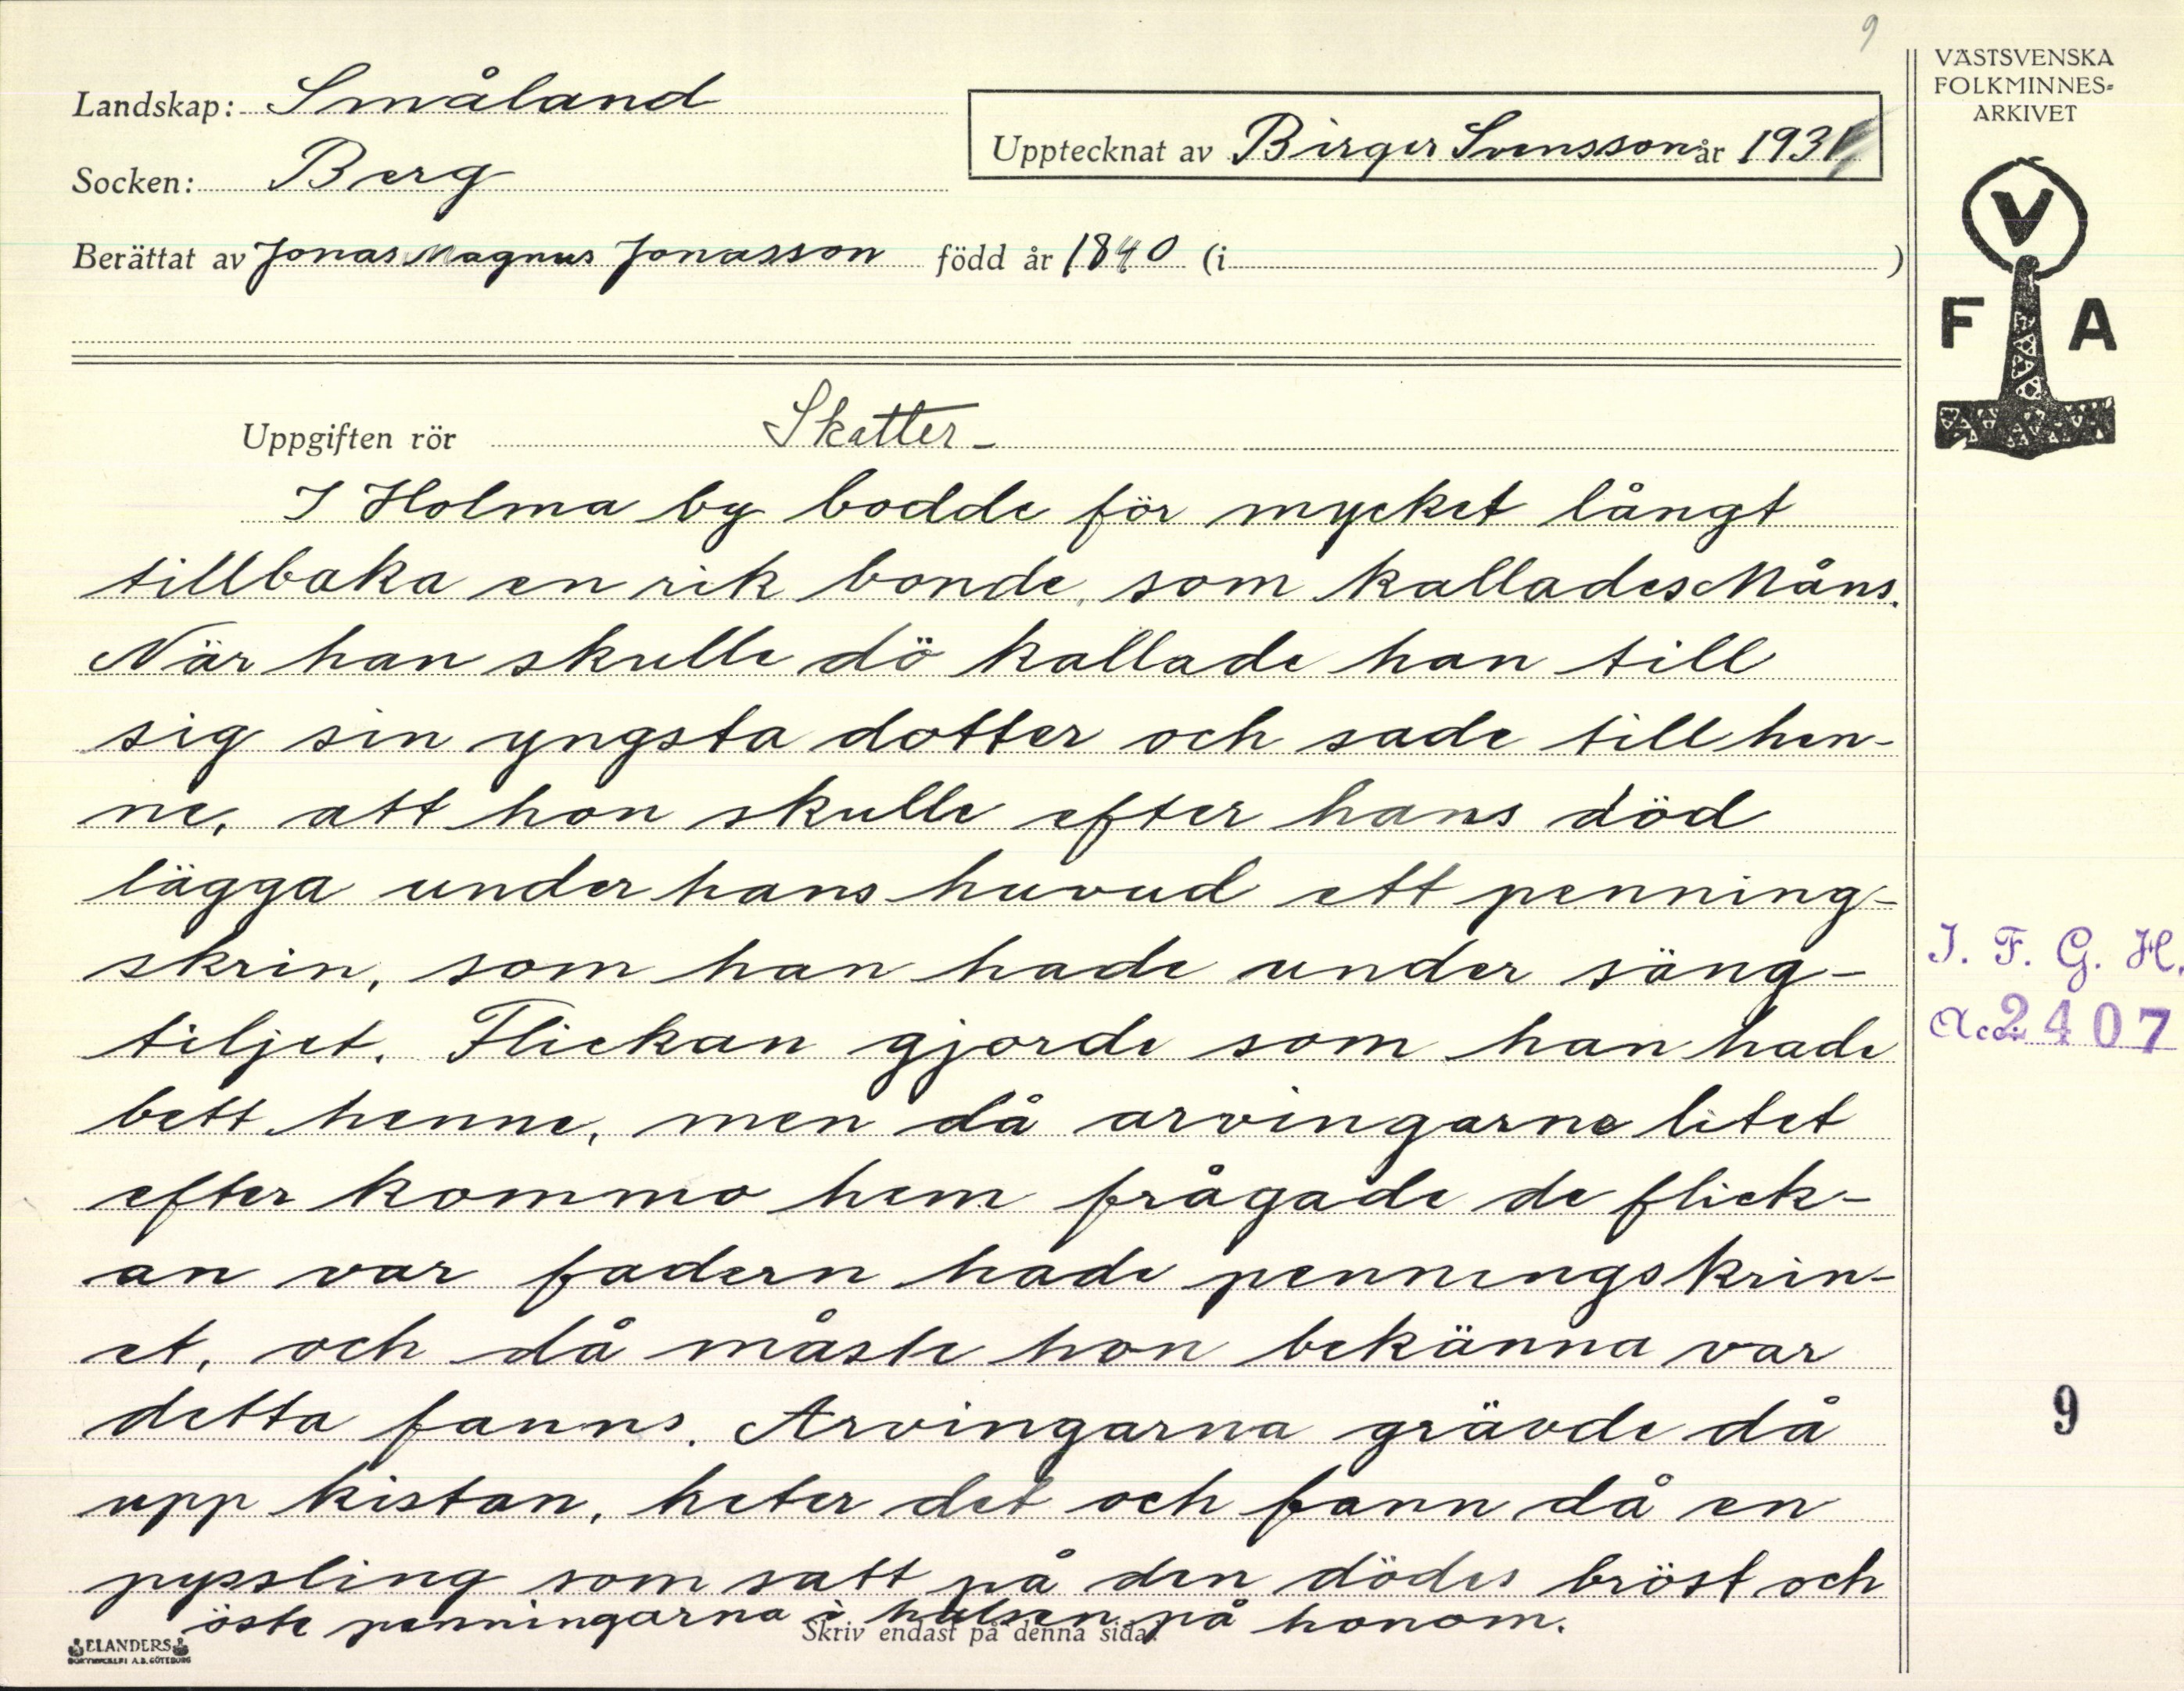 9
VÄSTSVENSKA
FOLKMINNES-
ARKIVET
Landskap: Småland
Upptecknat av Birger Svensson år 1931
Socken: Berg
Berättat av Jonas Magnus Jonasson född år 1840 (i )
V
F A
Uppgiften rör Skatter-
I Holma by bodde för mycket långt
tillbaka en rik bonde, som kallades Måns.
När han skulle dö kallade han till
sig sin yngsta dotter och sade till hen-
ne, att hon skulle efter hans död
lägga under hans huvud ett penning-
skrin, som han hade under säng-
tiljet. Flickan gjorde som han hade
bett henne, men då arvingarne litet
efter kommo hem frågade de flick-
an var fadern hade penningskrin-
et, och då måste hon bekänna var
detta fanns. Arvingarna grävde då
upp kistan, heter det och fann då en
pyssling som satt på den dödes bröst och
öste penningarna i halsen på honom.
Skriv endast på denna sida.
I. F. G. H.
Acc. 2407
9
ELANDERS
BOKTRYCKERI A.B. GÖTEBORG